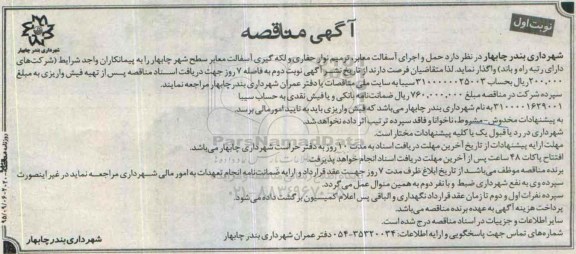 نوبت اول
آگهی مناقصه
شهرداری بندر چابهار
شهرداری بندر چابهار در نظر دارد حمل و اجرای آسفالت معابر، ترمیم نوار حفاری و لکه گیری آسفالت معابر سطح شهر چابهار را به پیمانکاران واجد شرایط (شرکت‌های
دارای رتبه راه و باند) واگذار نماید. لذا متقاضیان فرصت دارند از تاریخ نشر آگهی نوبت دوم به فاصله ۷ روز جهت دریافت اسناد مناقصه پس از تهیه فیش واریزی به مبلغ
ریال بحساب ۳۱۰۰۰۰۰۰۲۵۰۰۳ سیبا به سایت ملی مناقصات یا دفتر عمران شهرداری بندر چابهار مراجعه نمایند.
سپرده شرکت در مناقصه مبلغ ۷۶۰,۰۰۰,۰۰۰ ریال ضمانت‌نامه بانکی و یا فیش نقدی به حساب سیبا
۳۱۰۰۰۰۱۶۲۹۰۰۱ به نام شهرداری بندر چابهار می باشد که فیش واریزی باید به تایید امور مالی برسد.
به پیشنهادات مخدوش، مشروط، ناخوانا و فاقد سپرده ترتیب اثر داده نخواهد شد.
شهرداری در رد یا قبول یک یا کلیه پیشنهادات مختار است.
مهلت ارایه پیشنهادات از تاریخ آخرین مهلت دریافت اسناد به مدت ۱۰ روز به دفتر حراست شهرداری چابهار می‌باشد.
افتتاح پاکات ۴۸ ساعت پس از آخرین مهلت دریافت اسناد انجام خواهد پذیرفت.
برنده مناقصه موظف می‌باشد از تاریخ ابلاغ ظرف مدت ۷ روز جهت عقد قرارداد و ارایه ضمانت‌نامه انجام تعهدات به امور مالی شهرداری مراجعه نماید در غیر اینصورت
سپرده وی به نفع شهرداری ضبط و با نفر دوم به همین منوال عمل می‌گردد.
سپرده نفرات اول و دوم تا زمان عقد قرارداد نگهداری و الباقی پس اعلام کمیسیون برگشت داده می‌شود.
پرداخت هزینه آگهی به عهده برنده مناقصه می‌باشد.
سایر اطلاعات و جزییات در اسناد مناقصه درج شده است.
شماره‌های تماس جهت پاسخگویی و ارایه اطلاعات: ۳۵۳۲۰۰۳۴-۰۵۴ دفتر عمران شهرداری بندر چابهار
شهرداری بندر چابهار